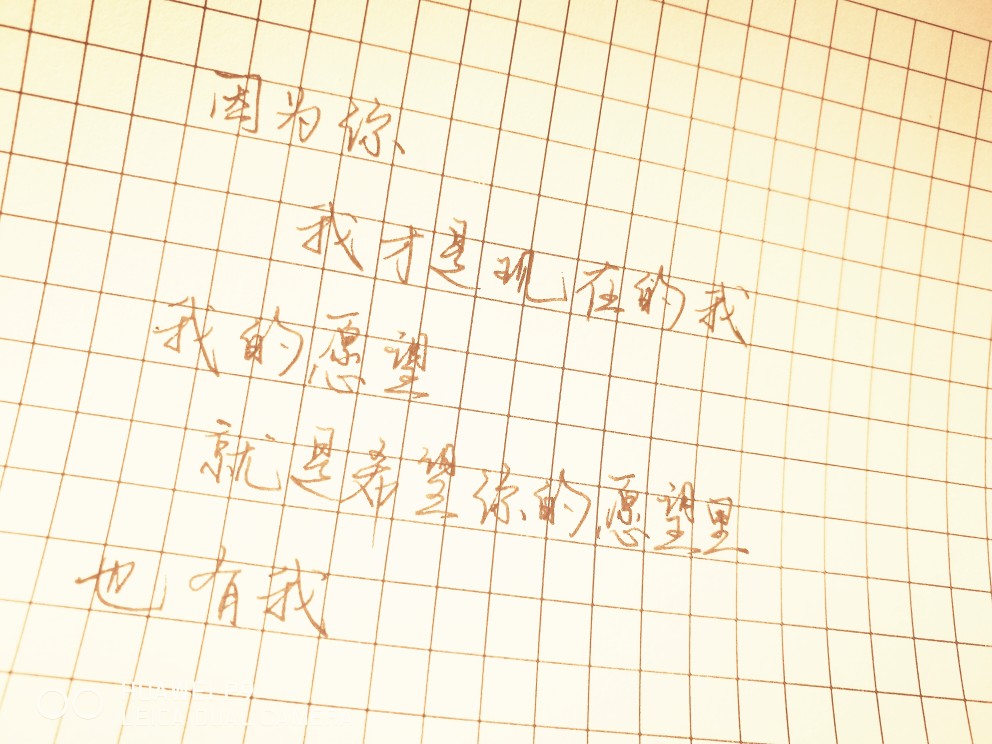 因为你
我才是现在的我
我的愿望
就是希望你的愿望里
也有我